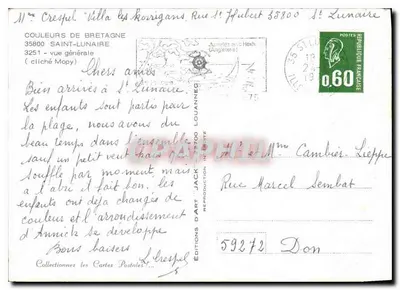 Mme Crespel Villa les Kovregans, Rue St Hubert 35800 St Lunaire
COULEURS DE BRETAGNE
35800 SAINT-LUNAIRE
3251 - vue générale
( cliché Mopy )
Chers amis
Bien arrivés à St Lunaire.
Les enfants sont partis pour
la plage, nous avons du
beau temps dans l'ensemble
sauf un petit vent frais qui
souffle par moment, mais
à l'abri il fait bon, les
enfants ont déja changés de
couleur et l'arrondissement
d'Annick se développe.
Bons baisers
L. Crespel
Collectionnez les Cartes Postales
EDITIONS D'ART JACK 22700 LOUANNEC
POSTES
0,60
REPUBLIQUE FRANÇAISE
Mr et Mme Cambier Lieppe
Rue Marcel Sembat
59272 Don